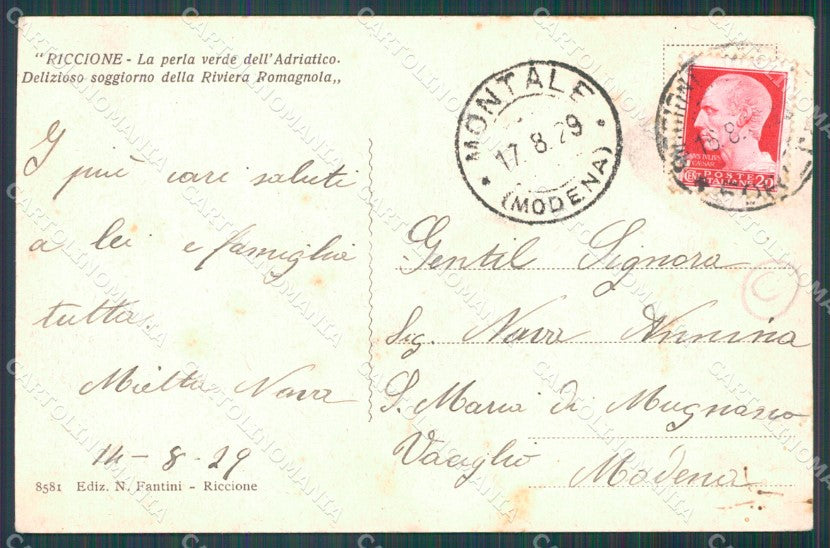 "RICCIONE - La perla verde dell'Adriatico.
Delizioso soggiorno della Riviera Romagnola,,
I più cari saluti
a lei e famiglia
tutta.
Nava
14-8-29
8581 Ediz. N. Fantini - Riccione
MONTALE
17.8.29
(MODENA)
POSTE
ITALIANE
CENT 20
Gentil Signora
Sig. Nava Annina
S. Maria di Mugnano
Vaciglio Modena
CARTOLINOMANIA